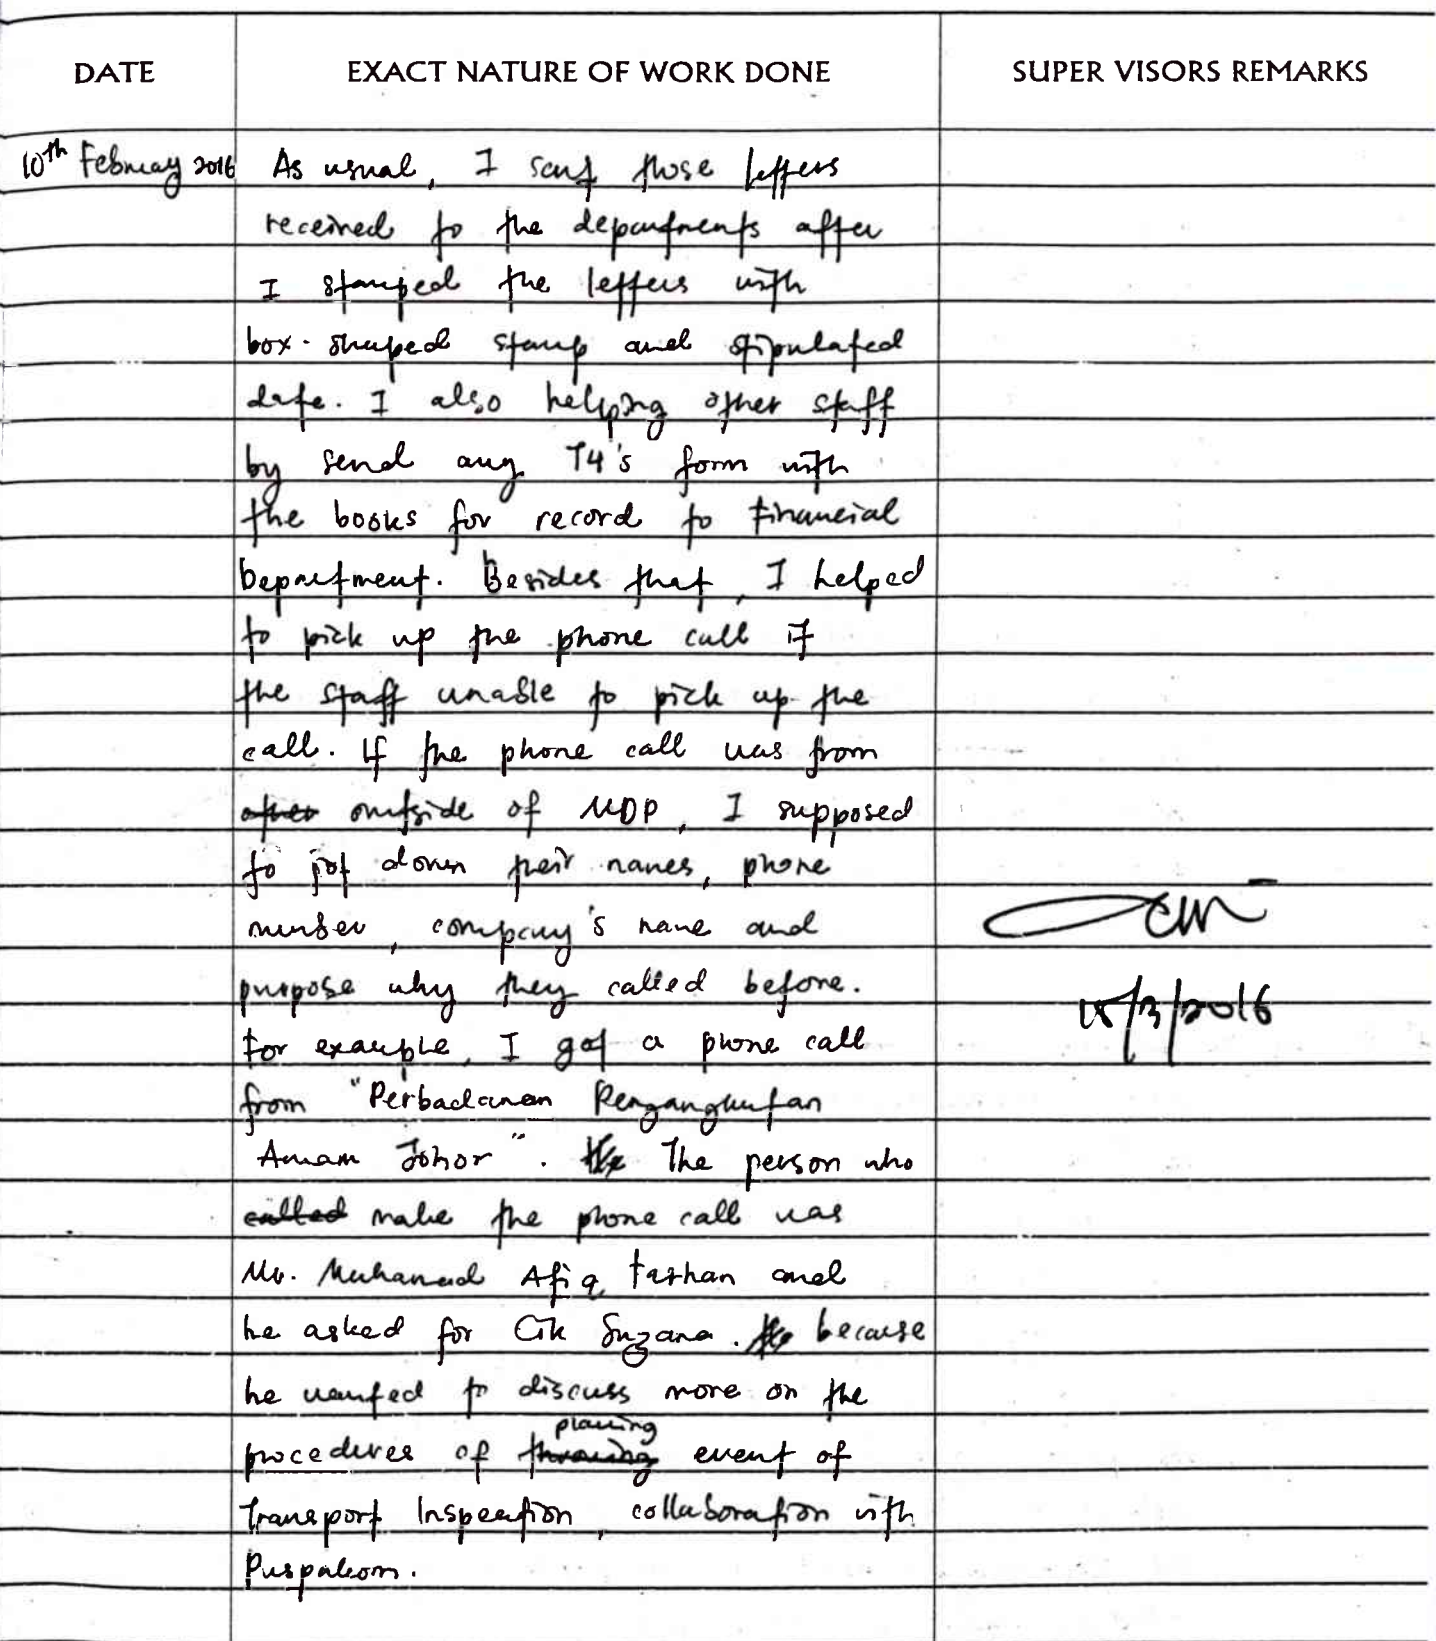 DATE EXACT NATURE OF WORK DONE SUPER VISORS REMARKS
10th February 2016 As usual, I sent those letters
received to the departments after
I stamped the letters with
box-shaped stamp and stipulated
date. I also helping other staff
by send any T4's form with
the books for record to Financial
Department. Besides that, I helped
to pick up the phone call if
the staff unable to pick up the
call. If the phone call was from
other outside of MDP, I supposed
to jot down their names, phone
number, company's name and
purpose why they called before.
For example, I got a phone call
from "Perbadanan Pengangkutan
Awam Johor". The person who
called make the phone call was
Mr. Muhamad Afiq Farhan and
he asked for Cik Suzana. because
he wanted to discuss more on the
planing
procedures of event of
Transport Inspection, collaboration with
Puspakom.
15/3/2016